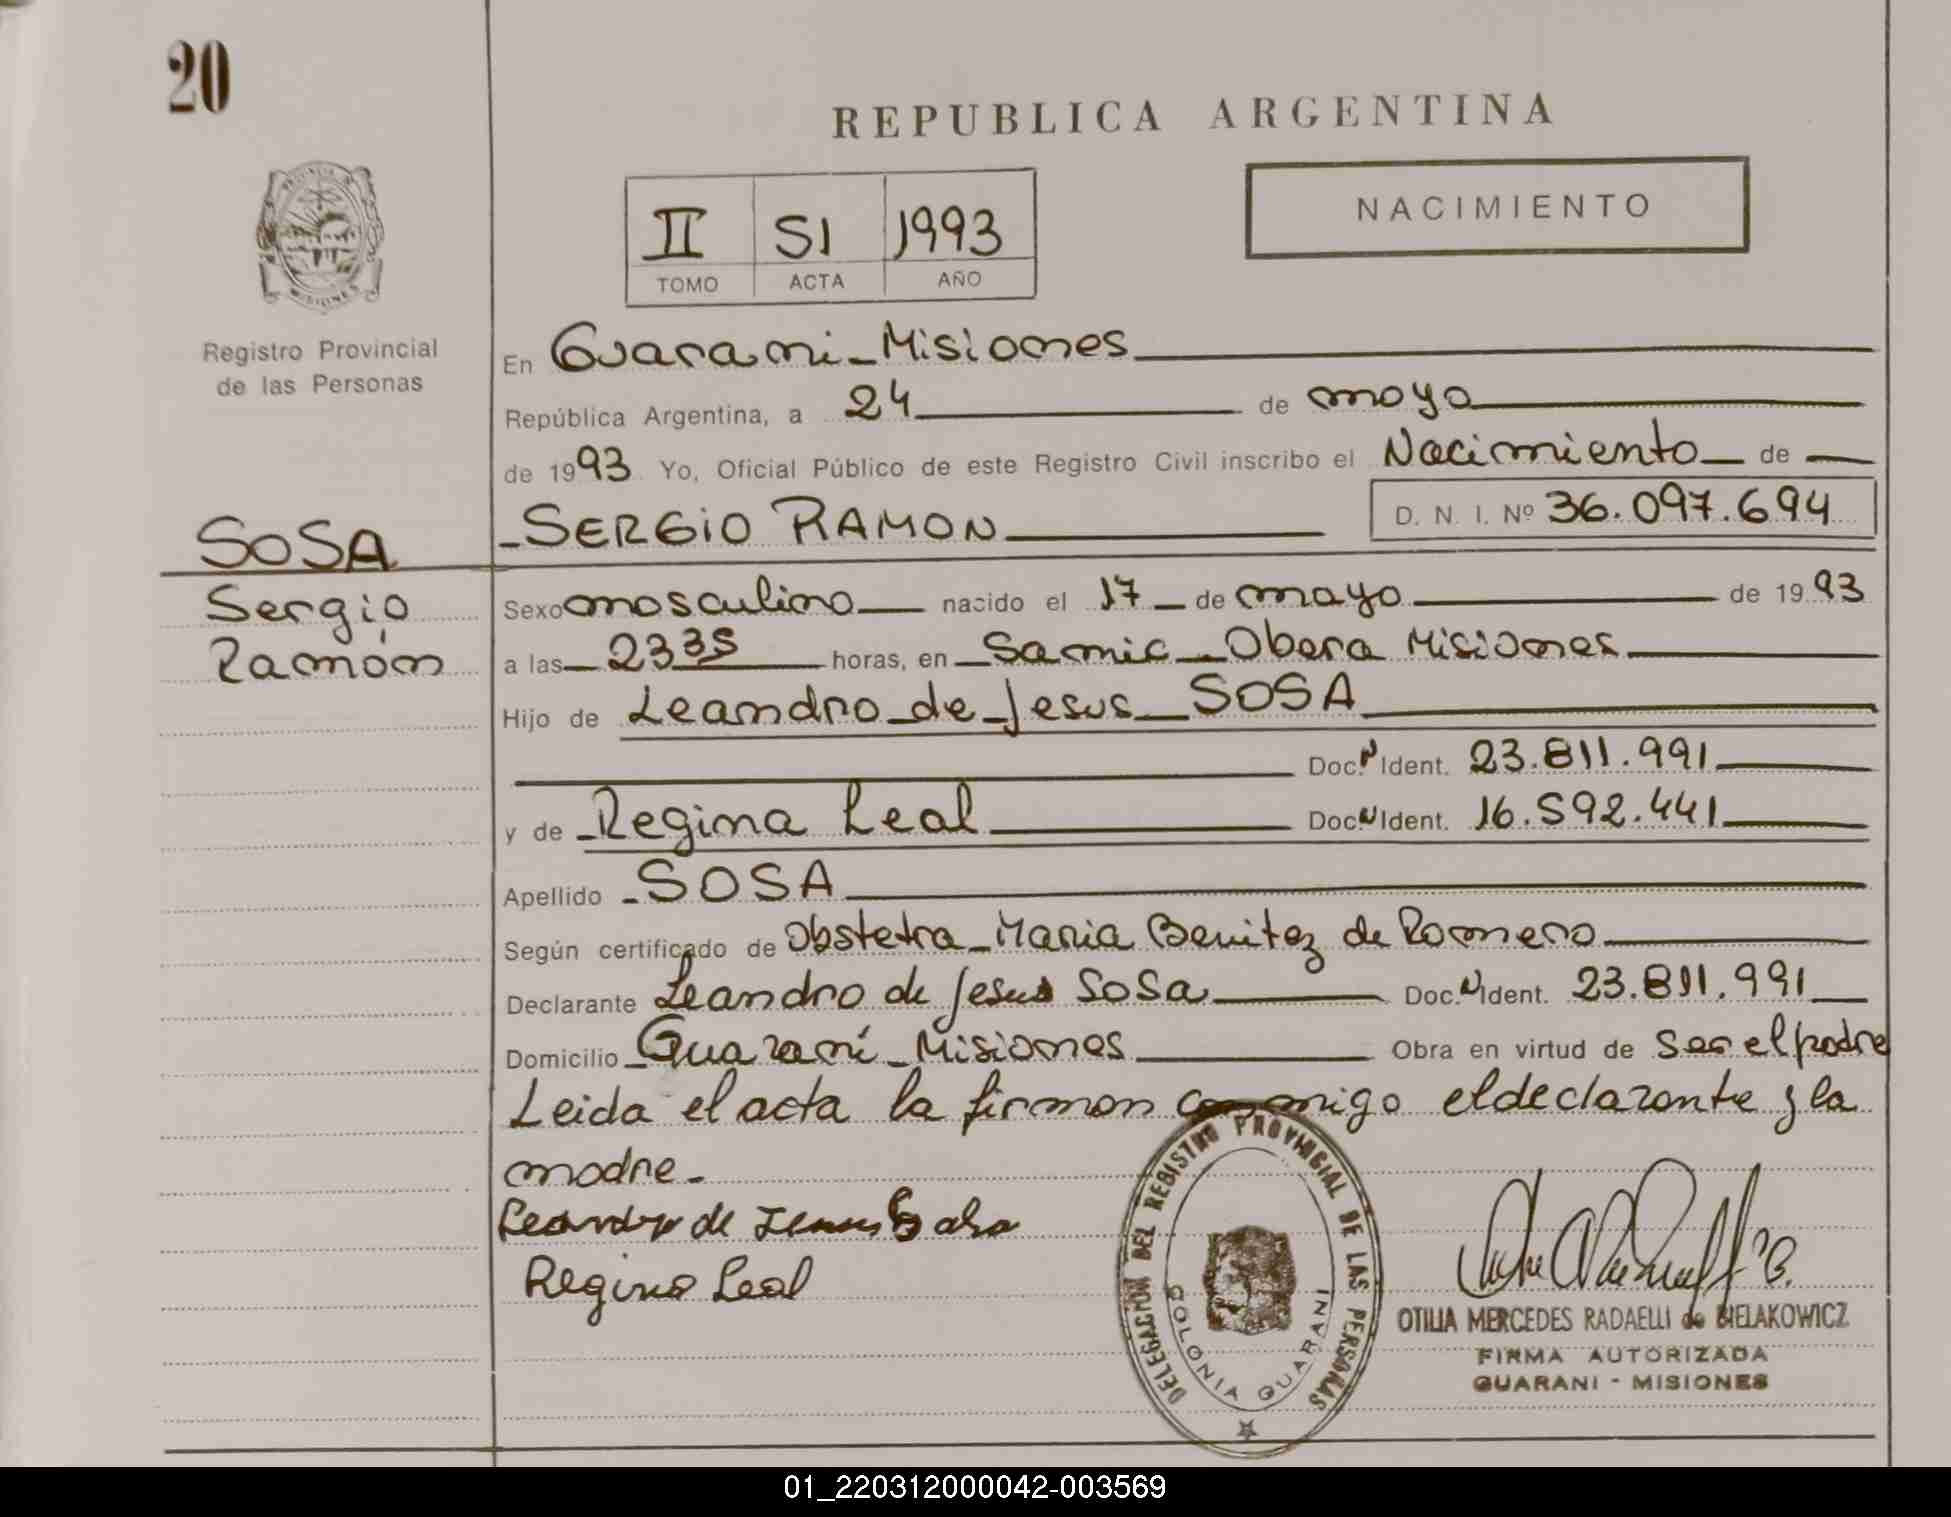 20
REPUBLICA ARGENTINA
PROVINCIA DE
MISIONES
Registro Provincial
de las Personas
II 51 1993
TOMO ACTA AÑO
NACIMIENTO
En Guarani - Misiones
República Argentina, a 24 de mayo
de 1993 Yo, Oficial Público de este Registro Civil inscribo el Nacimiento de
SOSA
Sergio
Ramón
- SERGIO RAMON D. N. I. Nº 36.097.694
Sexo masculino nacido el 17 de mayo de 1993
a las 23 35 horas, en Samic - Obera Misiones
Hijo de Leandro de Jesus SOSA
Doc. N Ident. 23.811.991
y de Regina Leal Doc. N Ident. 16.592.441
Apellido - SOSA
Según certificado de Obstetra - Maria Benitez de Romero
Declarante Leandro de Jesus Sosa Doc. N Ident. 23.811.991
Domicilio - Guaraní - Misiones Obra en virtud de ser el padre
Leida el acta la firman conmigo el declarante y la
madre -
Leandro de Jesus Sosa
Regina Leal
DELEGACIÓN DEL REGISTRO PROVINCIAL DE LAS PERSONAS
COLONIA GUARANI
OTILIA MERCEDES RADAELLI de BIELAKOWICZ
FIRMA AUTORIZADA
GUARANI - MISIONES
01_220312000042-003569